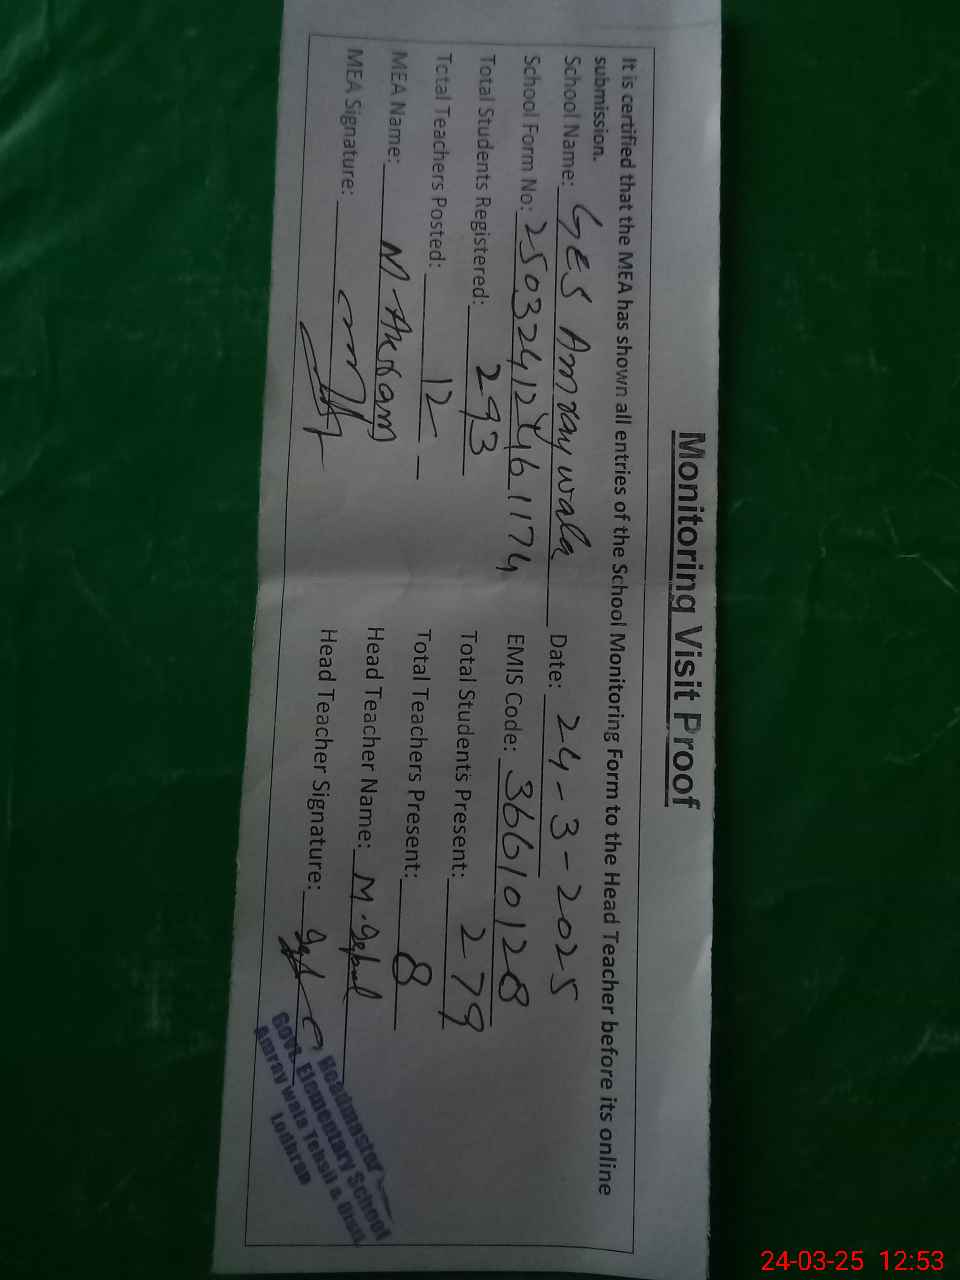 Monitoring Visit Proof
It is certified that the MEA has shown all entries of the School Monitoring Form to the Head Teacher before its online
submission.
School Name: GES Amraywala Date: 24-3-2025
School Form No: 250324121461174 EMIS Code: 36610128
Total Students Registered: 293 Total Students Present: 279
Total Teachers Posted: 12 Total Teachers Present: 8
MEA Name: M. Akram Head Teacher Name: M. Iqbal
MEA Signature: Head Teacher Signature:
Headmaster
Govt. Elementary School
Amray wala Tehsil & Distt.
Lodhran
24-03-25 12:53